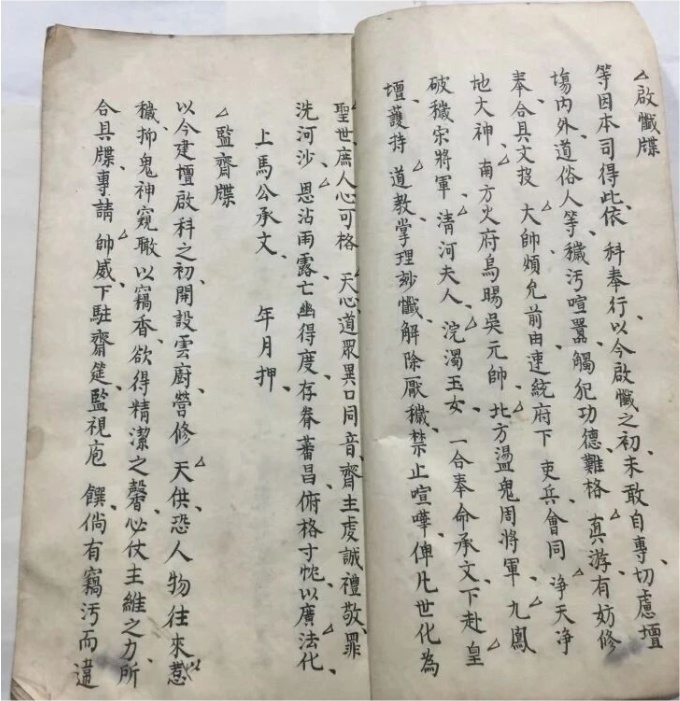 啟懺牒
等因本司得此依科奉行以今啟懺之初未敢自專切慮壇
場內外道俗人等穢污喧囂觸犯功德難格真游有妨修
奉合具文投大帥煩允前由速統府下吏兵會同淨天淨
地大神南方火府烏暘吳元帥北方盪鬼周將軍九鳳
破穢宋將軍清河夫人浣濁玉女一合奉命承文下赴皇
壇護持道教掌理妙懺解除厭穢禁止喧嘩俾凡世化為
聖世庶人心可格天心道眾異口同音齋主虔誠禮敬罪
洗河沙恩沾雨露亡幽得度存眷蕃昌俯格寸忱以廣法化
上馬公承文 年月押
監齋牒
以今建壇啟科之初開設雲廚營修天供恐人物往來惹
穢抑鬼神窺瞰以竊香欲得精潔之馨必仗主維之力所
合具牒專請帥威下駐齋筵監視庖饌倘有竊污而違